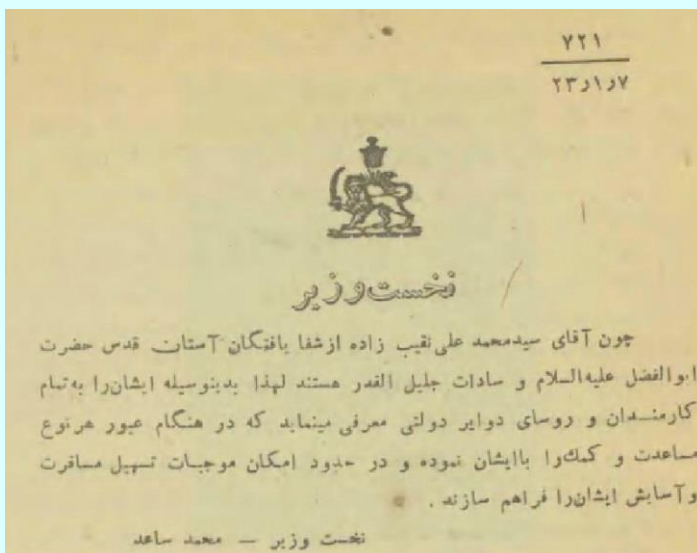 ۷۲۱
۲۳ر۱ر۷
نخست‌وزیر
چون آقای سیدمحمد علی نقیب زاده از شفا یافتگان آستان قدس حضرت
ابوالفضل علیه‌السلام و سادات جلیل القدر هستند لهذا بدینوسیله ایشان‌را به‌تمام
کارمندان و روسای دوایر دولتی معرفی مینماید که در هنگام عبور هرنوع
مساعدت و کمك‌را باایشان نموده و در حدود امکان موجبات تسهیل مسافرت
وآسایش ایشان‌را فراهم سازند .
نخست وزیر — محمد ساعد